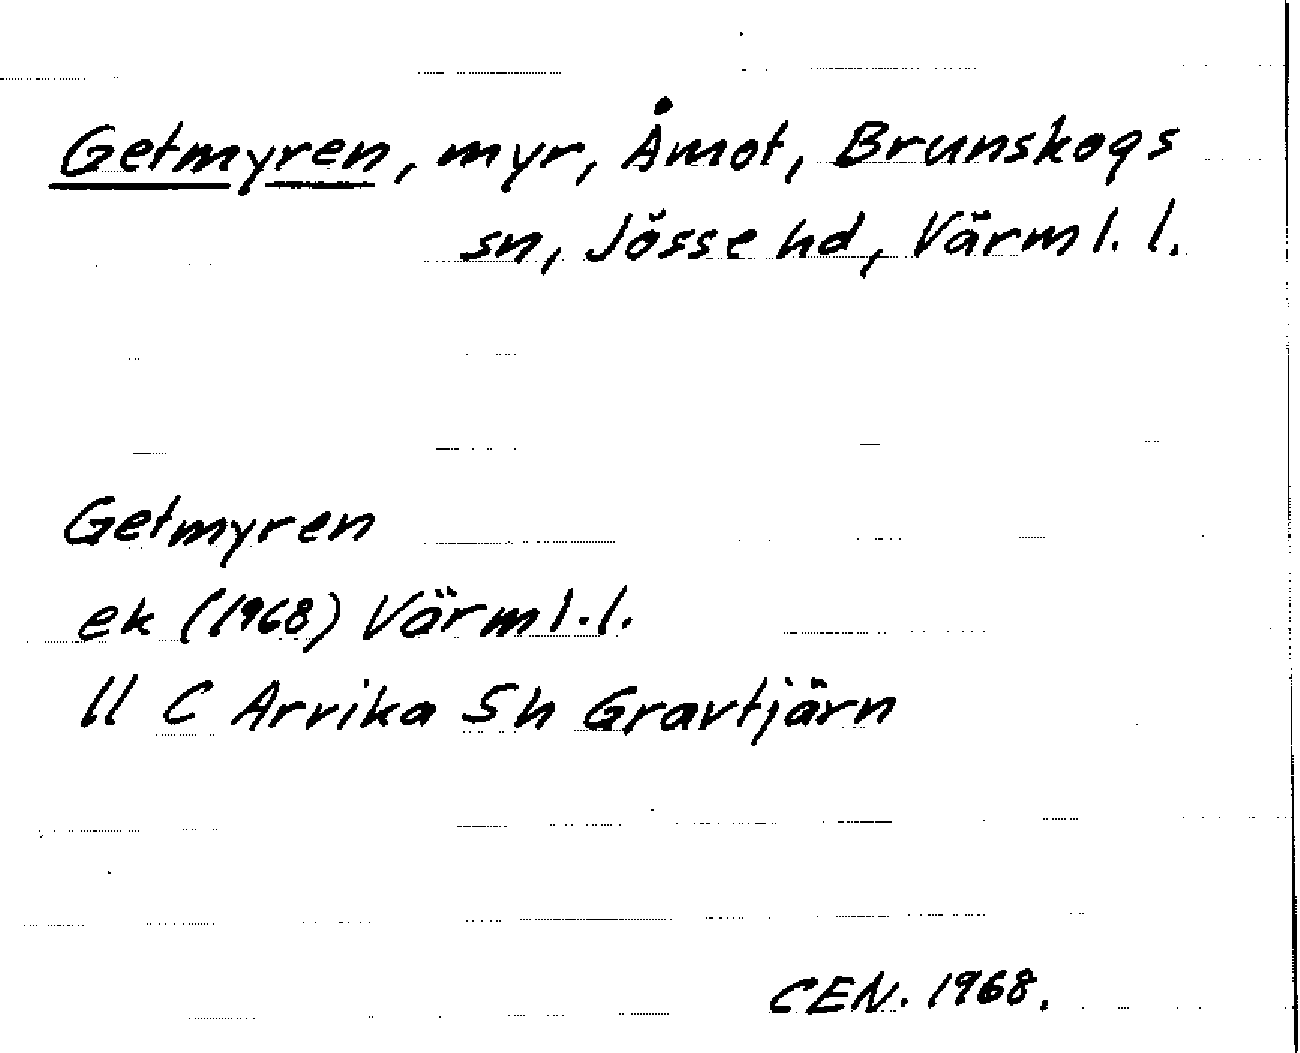 Getmyren, myr, Åmot, Brunskogs
sn, Jösse hd, Värml. l.
Getmyren
ek (1968) Värml. l.
11 C Arvika Sh Gravtjärn
CEN. 1968.